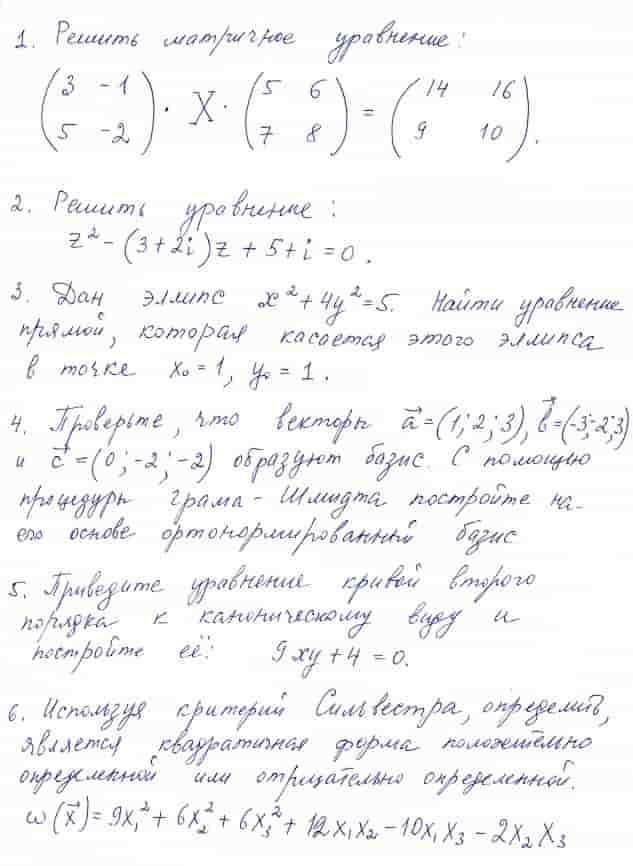 1. Решить матричное уравнение:
(3 -1 5 -2) · X · (5 6 7 8) = (14 16 9 10).
2. Решить уравнение:
z² - (3+2i)z + 5+i = 0.
3. Дан эллипс x²+4y²=5. Найти уравнение
прямой, которая касается этого эллипса
в точке x₀=1, y₀=1.
4. Проверьте, что векторы a⃗=(1;2;3), b⃗=(-3;-2;3)
и c⃗=(0;-2;-2) образуют базис. С помощью
процедуры Грама-Шмидта постройте на
его основе ортонормированный базис
5. Приведите уравнение кривой второго
порядка к каноническому виду и
постройте её: 9xy+4=0.
6. Используя критерий Сильвестра, определить,
является квадратичная форма положительно
определенной или отрицательно определенной.
ω(x⃗)=9x₁²+6x₂²+6x₃²+12x₁x₂-10x₁x₃-2x₂x₃